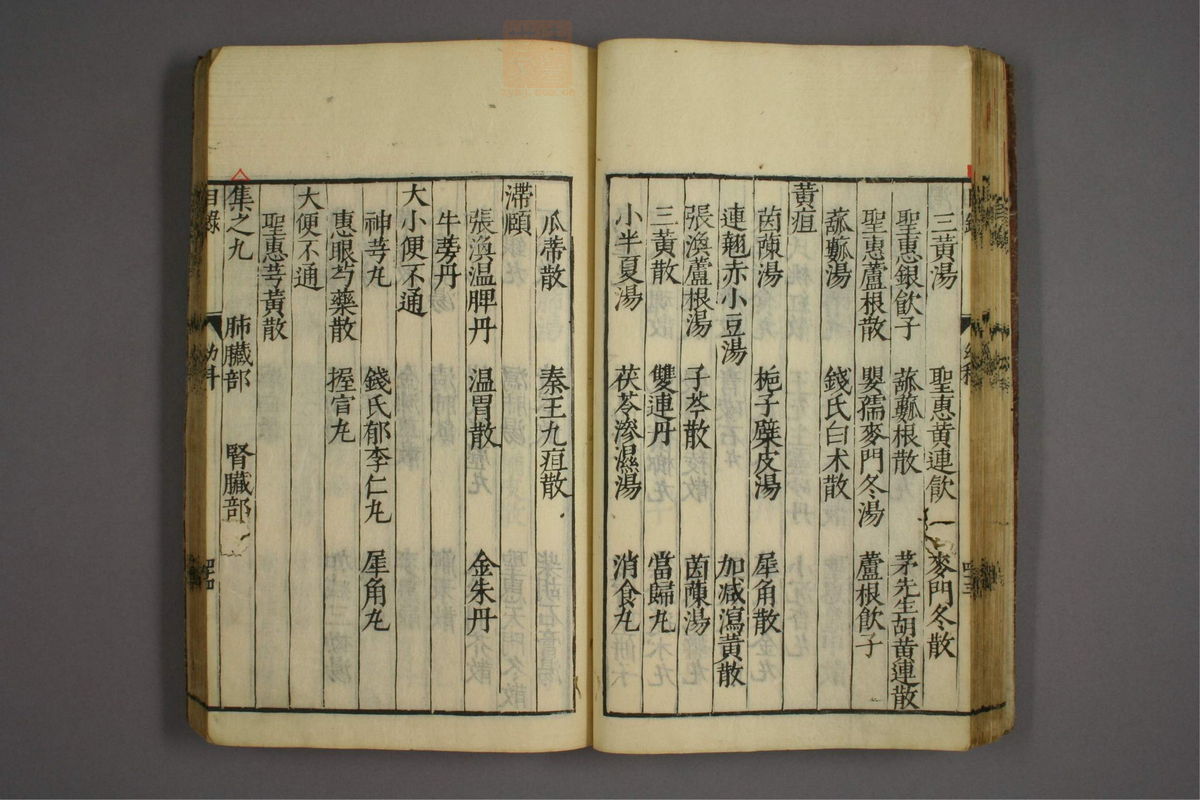 三黃湯　聖惠黃連飲　麥門冬散
聖惠銀飲子　蓏蔕根散　茅先生胡黃連散
聖惠蘆根散　嬰孺麥門冬湯　蘆根飲子
湯　錢氏白朮散
黃疸
茵蔯湯　梔子蘗皮湯　犀角散
連翹赤小豆湯　加減瀉黃散
張渙蘆根湯　子芩散　茵蔯湯
三黃散　雙連丹　當歸丸
小半夏湯　茯苓滲濕湯　消食丸
瓜蒂散　秦王九疸散
滯頤
張渙温脾丹　温胃散　金朱丹
牛蒡丹
大小便不通
神芎丸　錢氏郁李仁丸　犀角丸
惠眼芍藥散　握宣丸
大便不通
聖惠芎黃散
集之九　肺臟部　腎臟部
目錄　幼科